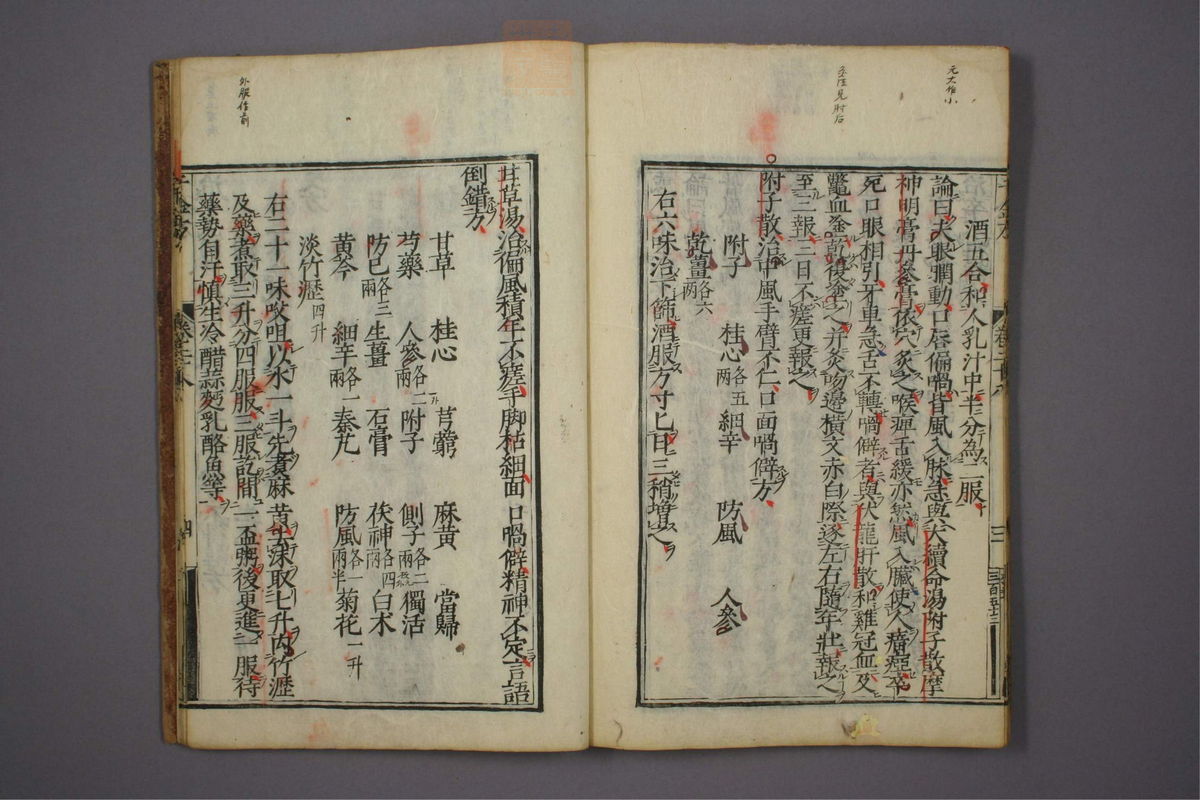 元大作小
灸法見肘后
酒五合和人乳汁中半分為二服
論曰夫眼瞤動口唇偏喎皆風入脉急與六續命湯附子散摩
神明膏丹參膏依穴灸之喉痺舌緩亦然風入臟使人瘖瘂卒
死口眼相引牙車急舌不轉喎僻者與伏龍肝散和雞冠血及
鼈血塗乾復塗之并灸吻邊橫文赤白際逐左右隨年壯報之
至三報三日不瘥更報之
附子散治中風手臂不仁口面喎僻方
附子 桂心各五兩 細辛 防風 人參
乾薑各六兩
右六味治下篩酒服方寸匕日三稍增之
三百五十三
外服作前
甘草湯治偏風積年不瘥手脚枯細面口喎僻精神不定言語
倒錯方
甘草 桂心 芎藭 麻黃 當歸
芍藥 人參各二兩 附子 側子各二兩 獨活
防己各三兩 生薑 石膏 茯神各四兩 白朮
黃芩 細辛各一兩 秦艽 防風各一兩半 菊花一升
淡竹瀝四升
右二十一味㕮咀以水一斗先煮麻黃去沫取七升內竹瀝
及藥煮取三升分四服服三服訖間一盃粥後更進一服待
藥勢自汗慎生冷醋蒜麪乳酪魚等
四